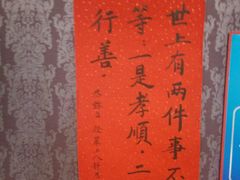 世上有兩件事不
等：一是孝順，二
行善。